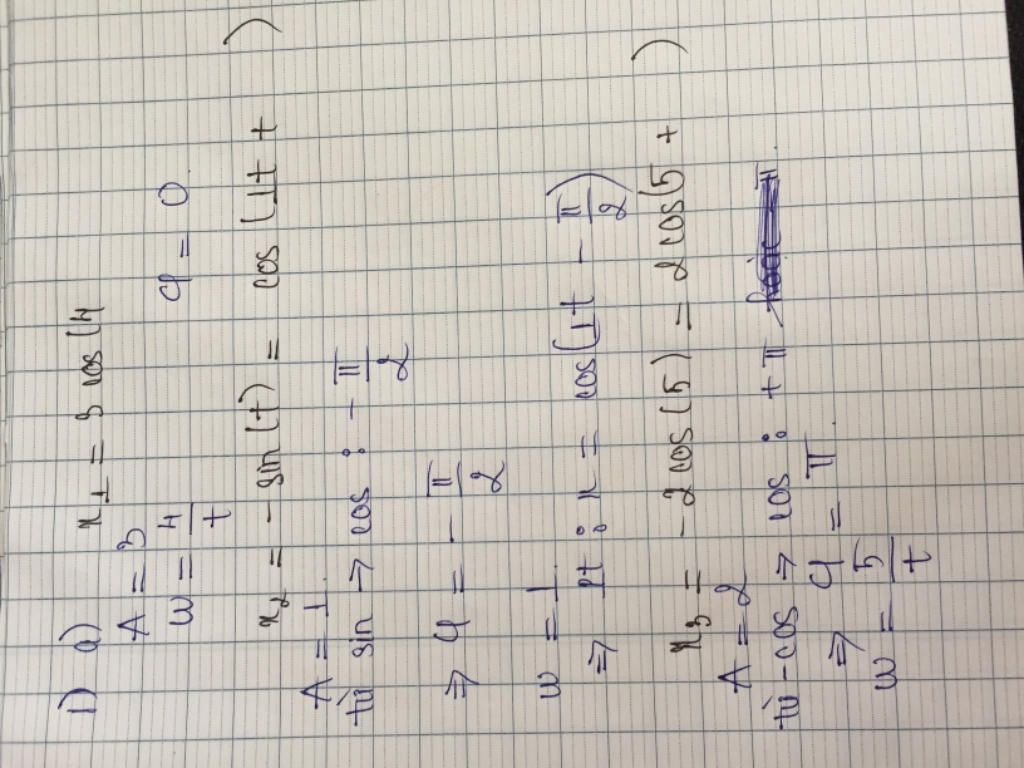 1) a) x₁ = 3 cos(4
A = 3
ω = 4/t φ = 0
x₂ = - sin(t) = cos (1t + )
A = 1
từ sin → cos : - π/2
⇒ φ = - π/2
ω = 1
⇒ pt : x = cos(1t - π/2)
x₃ = - 2cos(5) = 2cos(5 + )
A = 2
từ -cos → cos : + π
⇒ φ = π
ω = 5/t